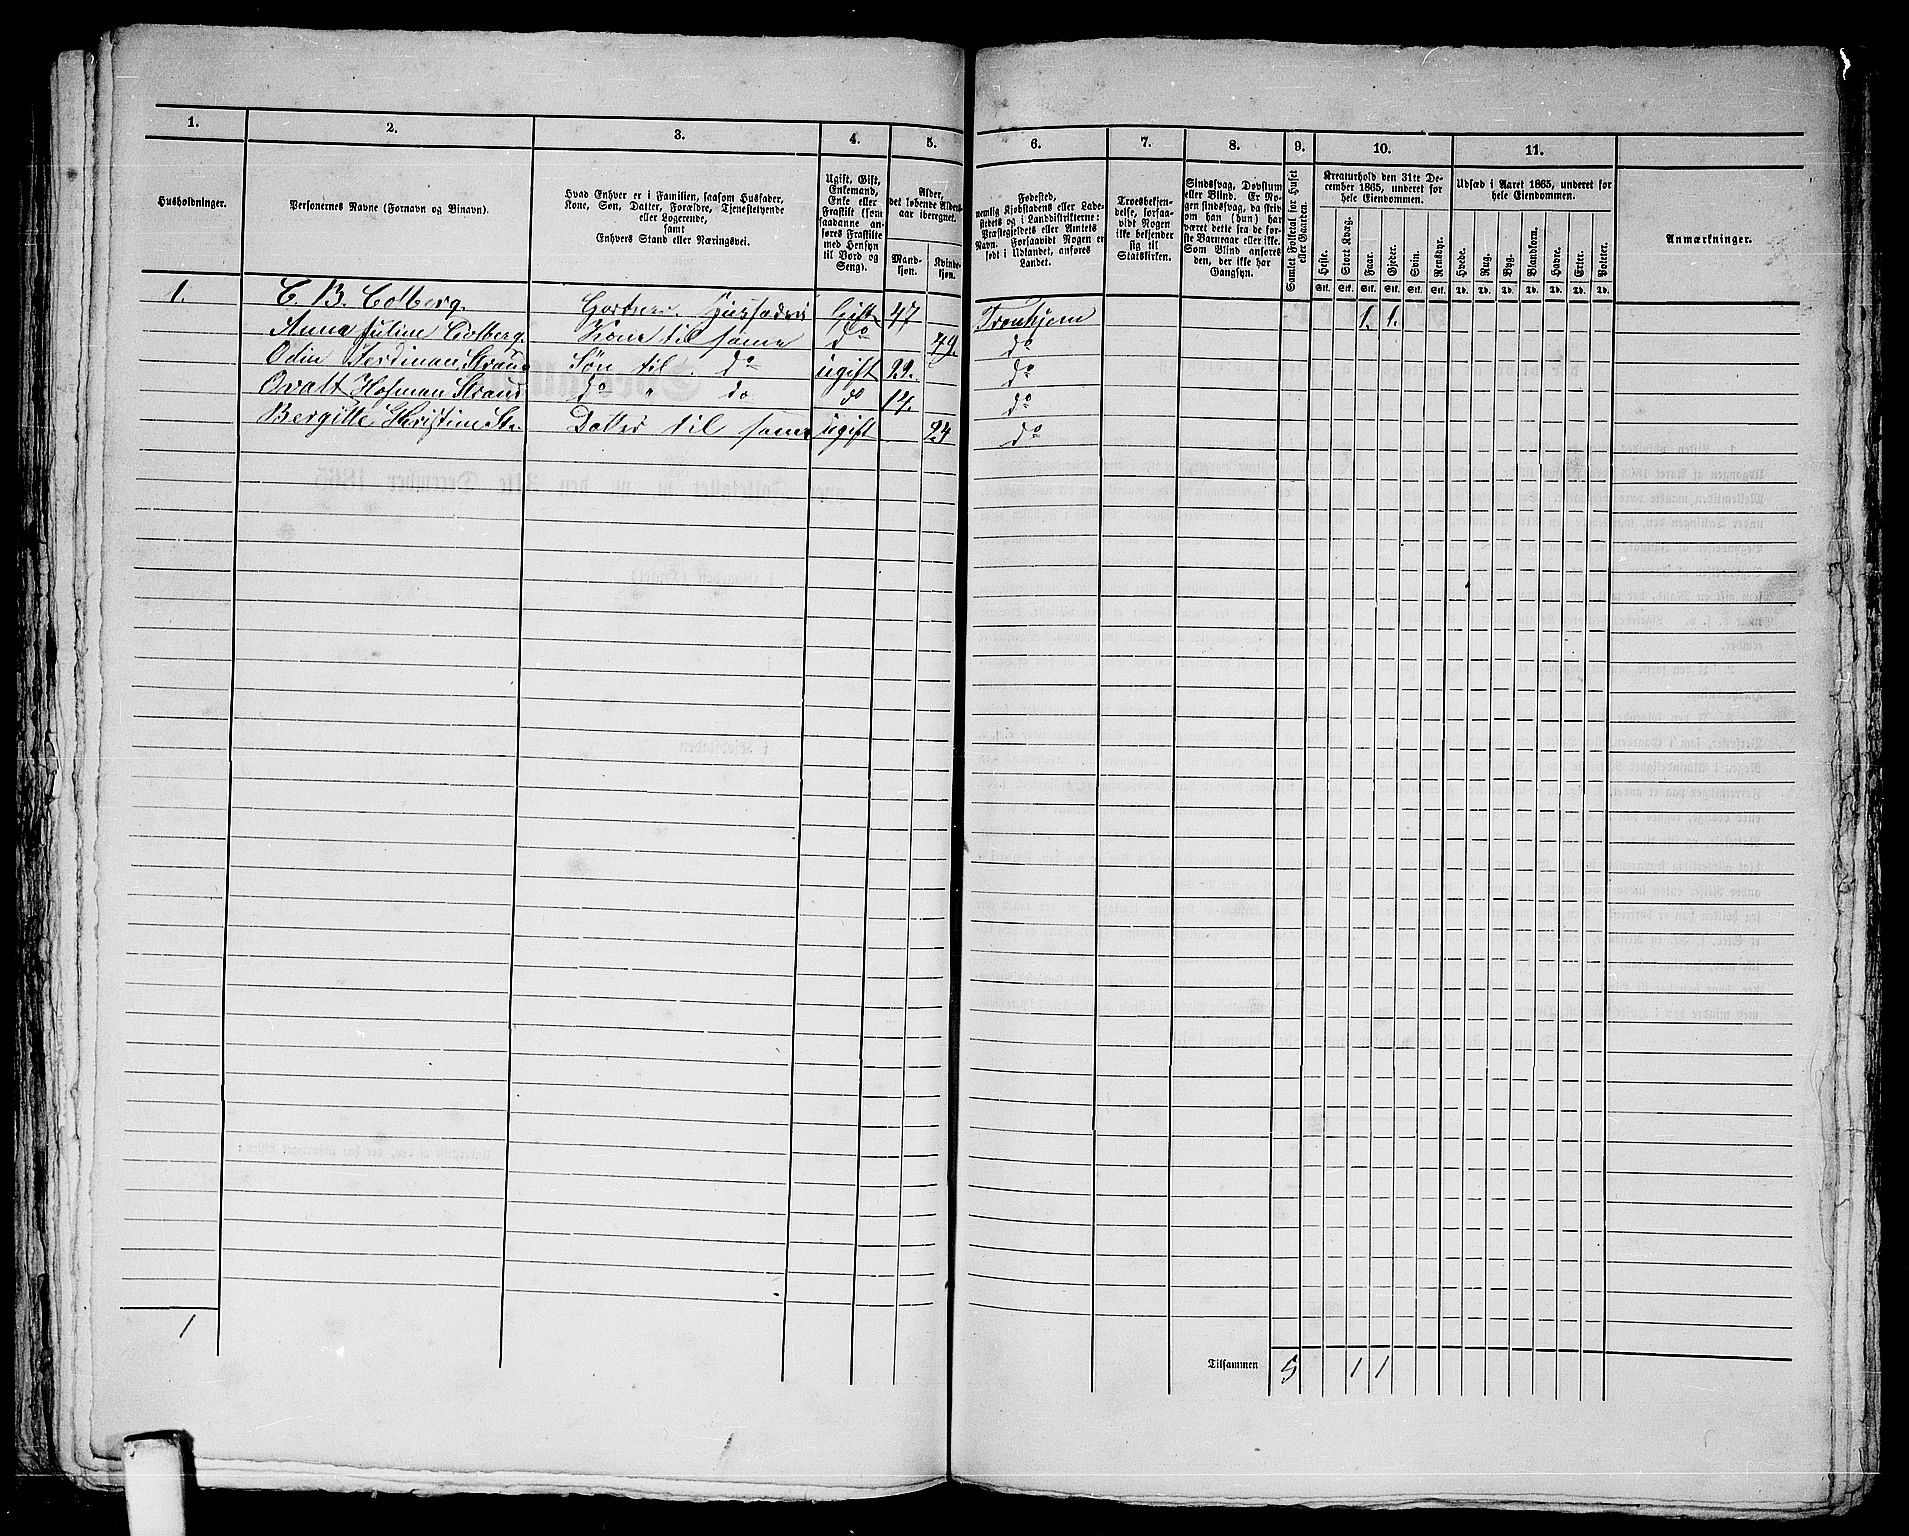 1. 2. 3. 4. 5. 6. 7. 8. 9. 10. 11.
Husholdninger.
Personernes Navne (Fornavn og Binavn).
Hvad Enhver er i Familien, saasom Husfader,
Kone, Søn, Datter, Forældre, Tjenestetyende
eller Logerende,
samt
Enhvers Stand eller Næringsvei.
Ugift, Gift,
Enkemand,
Enke eller
Fraskilt (som
saadanne an-
føres Fraskilte
med Hensyn
til Bord og
Seng).
Alder,
det løbende Alders-
aar iberegnet.
Mand-
kjøn.
Kvinde-
kjøn.
Fødested,
nemlig Kjøbstadens eller Lade-
stedets og i Landdistrikterne:
Præstegjeldets eller Amtets
Navn. Forsaavidt Nogen er
født i Udlandet, anføres
Landet.
Troesbekjen-
delse, forsaa-
vidt Nogen
ikke bekjender
sig til
Statskirken.
Sindssvag, Døvstum
eller Blind. Er No-
gen sindssvag, da skriv
om han (hun) har
været dette fra de før-
ste Barneaar eller ikke.
Som Blind anføres
den, der ikke har
Gangsyn.
Samlet Folketal for Huset
eller Gaarden.
Kreaturhold den 31te De-
cember 1865, underet for
hele Eiendommen.
Heste. Stort Kvæg. Faar. Gjeder. Svin. Rensdyr.
Stk. Stk. Stk. Stk. Stk. Stk.
Udsæd i Aaret 1865, underet for
hele Eiendommen.
Hvede. Rug. Byg. Blandkorn. Havre. Erter. Poteter.
Td. Td. Td. Td. Td. Td. Td.
Anmærkninger.
1. C. B. Colberg Gartner Husfader Gift 47 Tronhjem 1. 1.
Anna Juline Colberg. Kone til samme do 49. do
Odin Ferdinan Strand Søn til do ugift 22. do
Ovalt Hofman Strand do " do do 14. do
Bergitte Christine St. Datter til samme ugift 24 do
1
Tilsammen 5 1 1